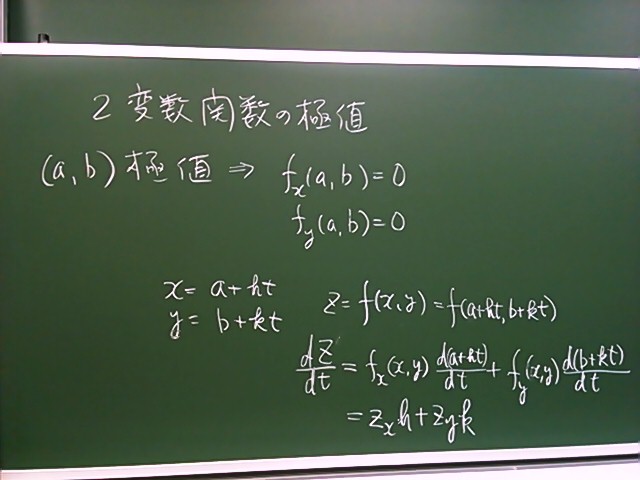 2変数関数の極値
(a,b)極値 ⇒ f_x(a,b)=0
f_y(a,b)=0
x= a+ht
y= b+kt
z=f(x,y)=f(a+ht,b+kt)
dz/dt = f_x(x,y) d(a+ht)/dt + f_y(x,y) d(b+kt)/dt
= z_x h+z_y k